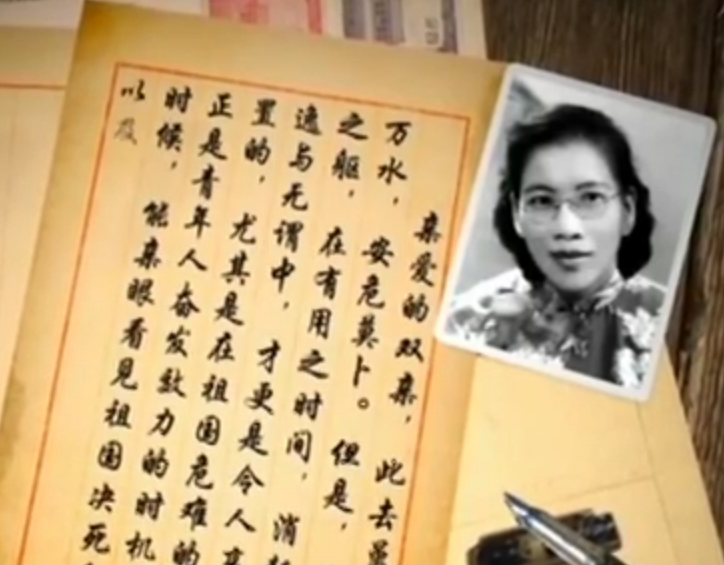 亲爱的双亲，此去
万水，安危莫卜。但是，
之躯，在有用之时间，消
逸与无谓中，才更是令人
置的，尤其是在祖国危难的
正是青年人奋发致力的时机
时候，能亲眼看见祖国决死
以及